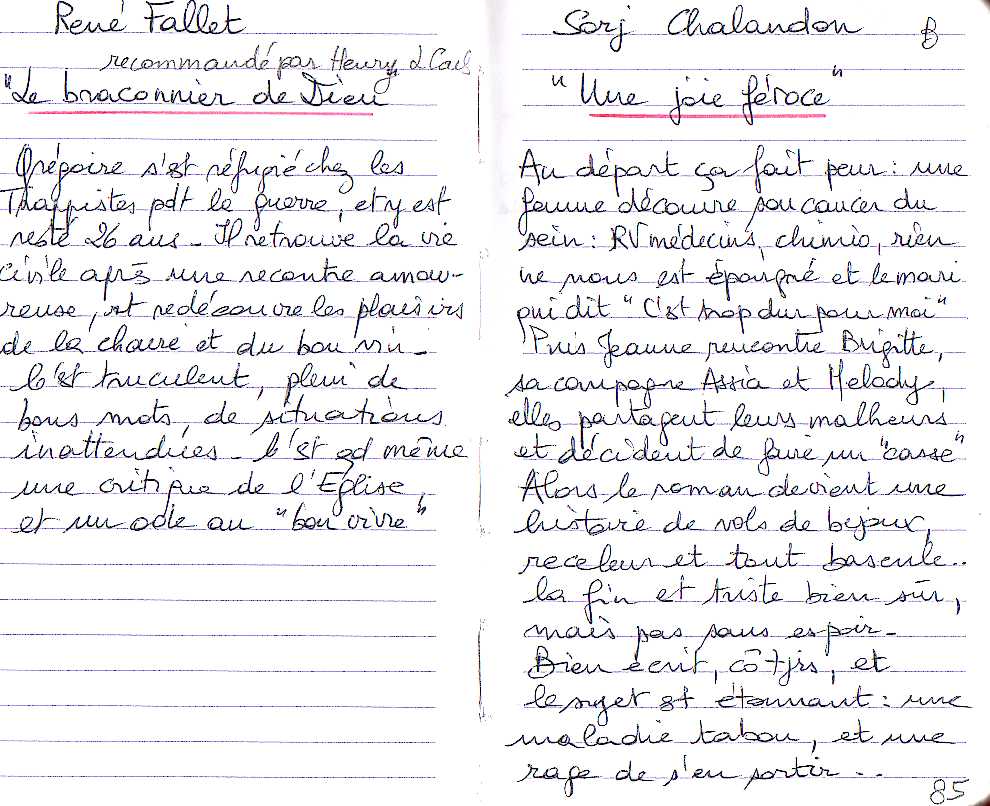 René Fallet
recommandé par Henry
"Le braconnier de Dieu"
Grégoire s'est réfugié chez les
Trappistes pdt la guerre, et y est
resté 26 ans - Il retrouve la vie
civile après une recontre amou-
reuse, et redécouvre les plaisirs
de la chaire et du bon vin -
C'est truculent, plein de
bons mots, de situations
inattendues - C'est qd même
une critique de l'Eglise,
et un ode au "bon vivre"
Sorj Chalandon B
"Une joie féroce"
Au départ ça fait peur : une
femme découvre son cancer du
sein : RV médecins, chimio, rien
ne nous est épargné et le mari
qui dit "C'est trop dur pour moi"
Puis Jeanne rencontre Brigitte,
sa compagne Assia et Melody,
elles partagent leurs malheurs
et décident de faire un "casse"
Alors le roman devient une
histoire de vols de bijoux,
receleur et tout bascule..
la fin est triste bien sûr,
mais pas sans espoir -
Bien écrit, cô tjrs, et
le sujet est étonnant : une
maladie tabou, et une
rage de s'en sortir ..
85